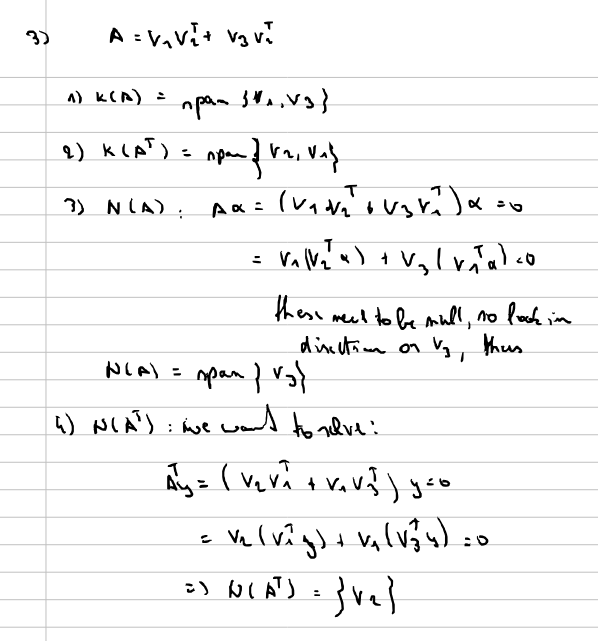 3) A = v₁v₂ᵀ + v₃v₂ᵀ
1) K(A) = span {v₁, v₃}
2) K(Aᵀ) = span {v₂, v₁}
3) N(A) : Aα = (v₁v₂ᵀ + v₃v₁ᵀ)α = 0
= v₁(v₂ᵀα) + v₃(v₁ᵀα) = 0
these need to be null, so look in
direction of v₃, thus
N(A) = span {v₃}
4) N(Aᵀ) : we want to solve:
Aᵀy = (v₂v₁ᵀ + v₁v₃ᵀ) y = 0
= v₂(v₁ᵀy) + v₁(v₃ᵀy) = 0
=> N(Aᵀ) = {v₂}